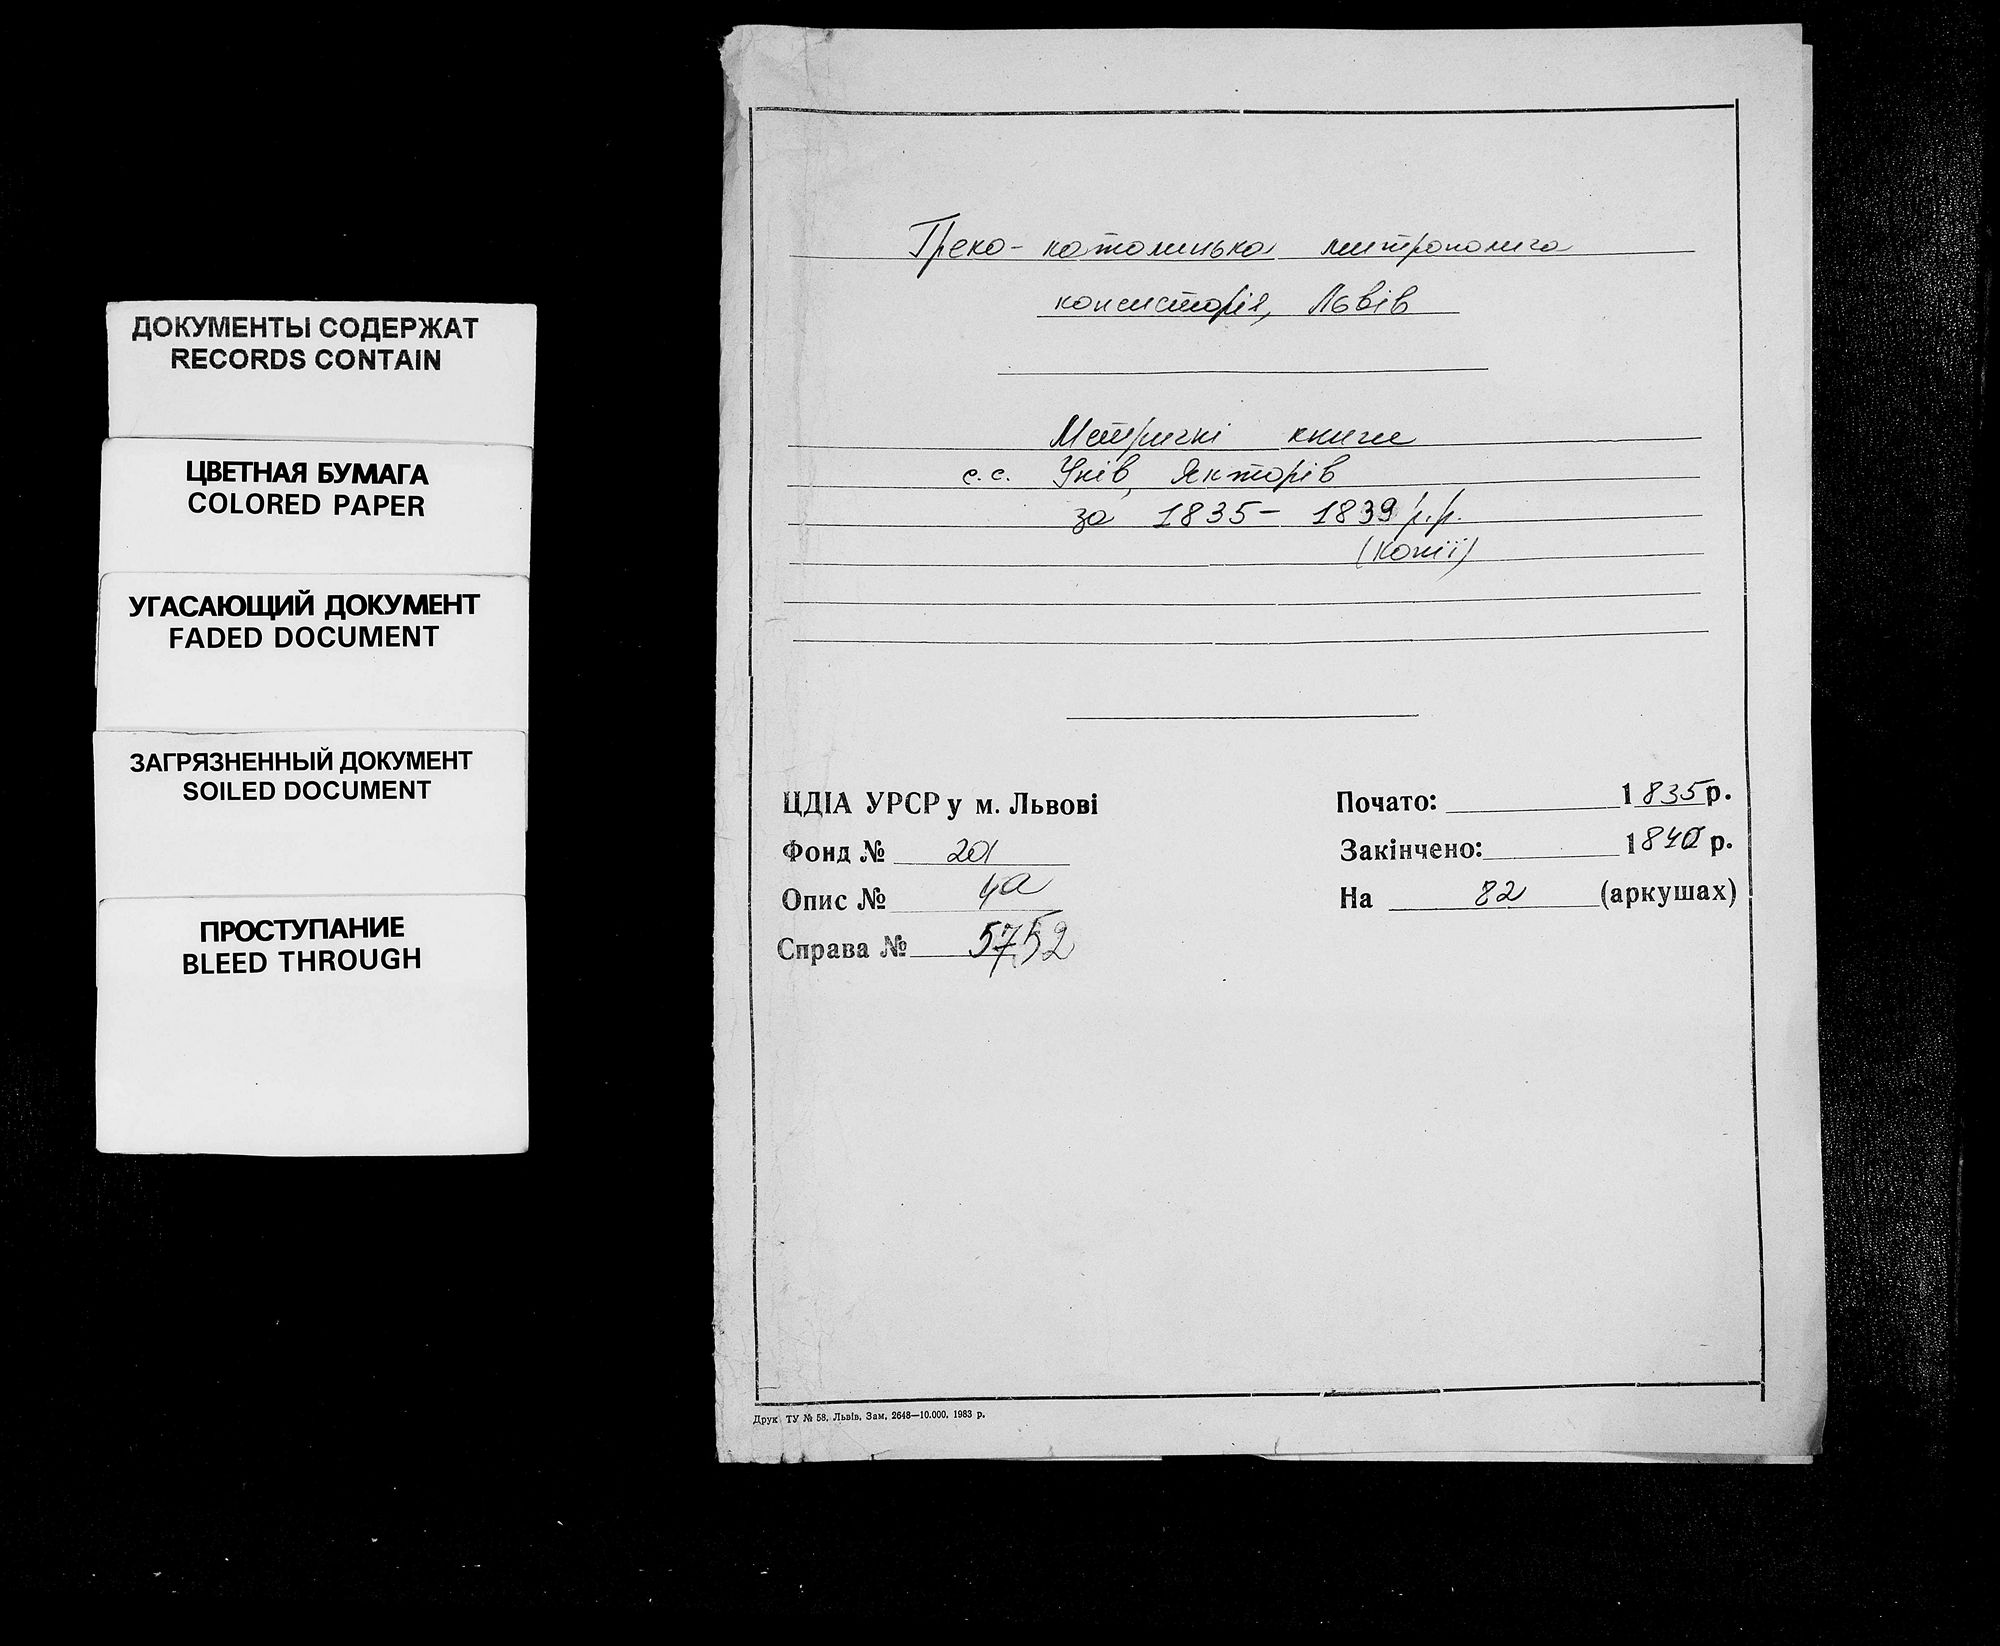 ДОКУМЕНТЫ СОДЕРЖАТ
RECORDS CONTAIN
ЦВЕТНАЯ БУМАГА
COLORED PAPER
УГАСАЮЩИЙ ДОКУМЕНТ
FADED DOCUMENT
ЗАГРЯЗНЕННЫЙ ДОКУМЕНТ
SOILED DOCUMENT
ПРОСТУПАНИЕ
BLEED THROUGH
Греко-католицька митрополича
консисторія, Львів
Метричні книги
с.с. Унів, Якторів
за 1835-1839 р.р.
(копії)
ЦДІА УРСР у м. Львові
Фонд № 201
Опис № 4а
Справа № 5752
Почато: 1835 р.
Закінчено: 1840 р.
На 82 (аркушах)
Друк ТУ № 58. Львів. Зам. 2648—10.000. 1983 р.